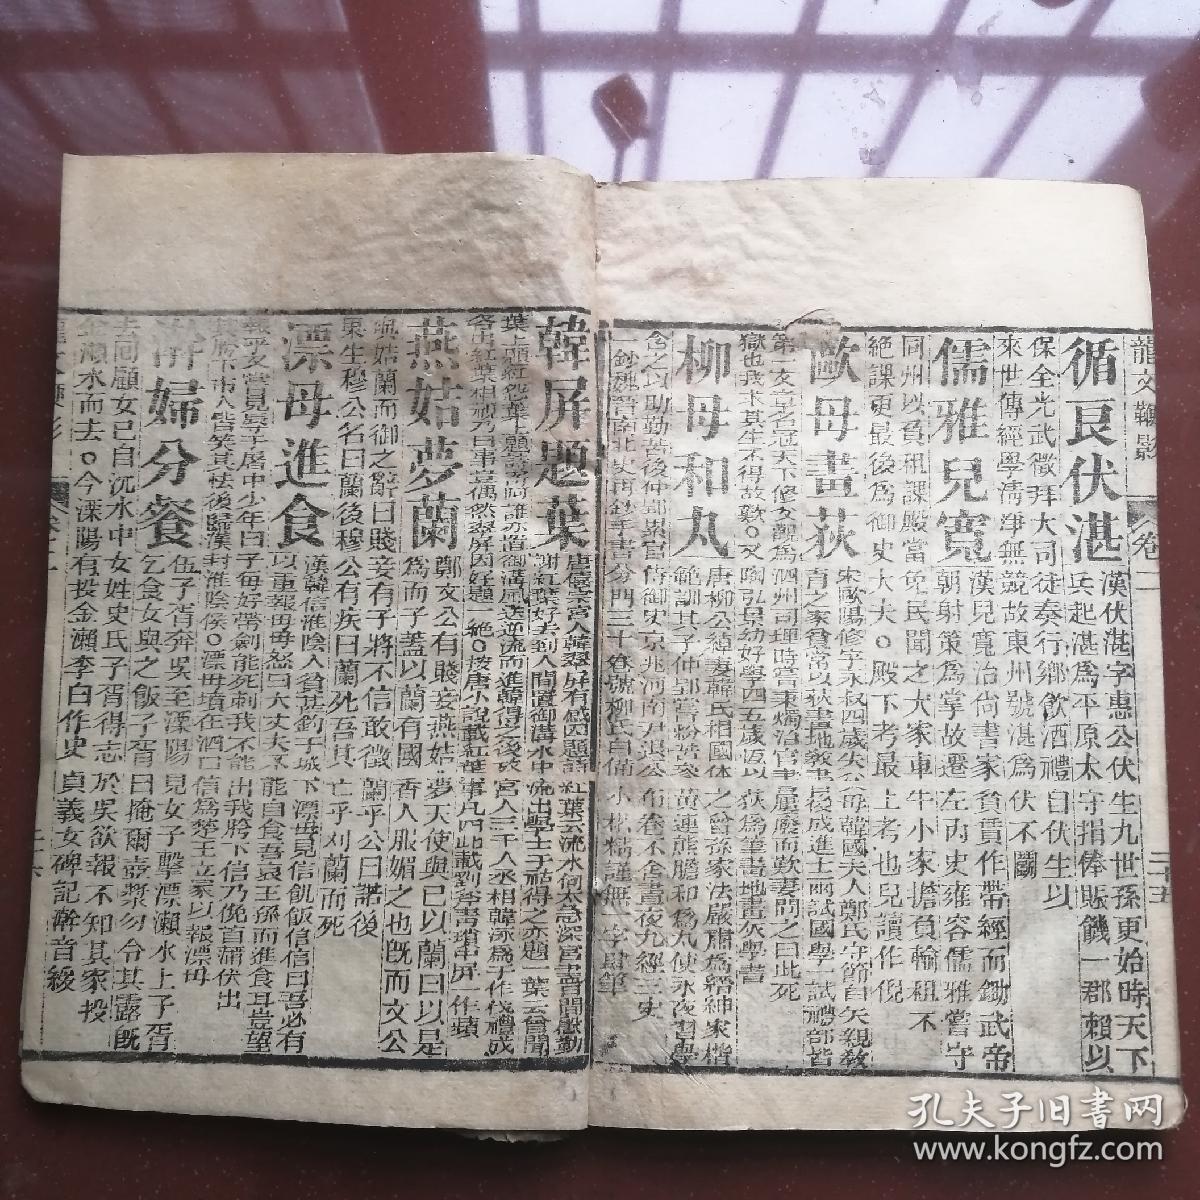 龍文鞭影
卷二
二十五
循良伏湛
漢伏湛字惠公伏生九世孫更始時天下
兵起湛為平原太守捐俸賑饑一郡賴以
保全光武徵拜大司徒奏行鄉飲酒禮自伏生以
來世傳經學清淨無競故東州號湛為伏不鬬
儒雅兒寬
漢兒寬治尚書家貧賃作帶經而鋤武帝
朝射策為掌故遷左內史雍容儒雅嘗守
同州以負租課殿當免民聞之大家車牛小家擔負輸租不
絕課更最後為御史大夫○殿下考最上考也兒讀作倪
歐母畫荻
宋歐陽修字永叔四歲失父母韓國夫人鄭氏守節自矢親教
育之家貧常以荻畫地教書後成進士兩試國學一試禮部皆
第一文章名冠天下修父觀為泗州司理時嘗秉燭治官書屢廢而歎妻問之曰此死
獄也我求其生不得故歎○又陶弘景幼好學四五歲恆以荻為筆畫地畫灰學書
柳母和丸
唐柳公綽妻韓氏相國休之曾孫家法嚴肅為縉紳家楷
範訓其子仲郢嘗粉苦參黃連熊膽和為丸使永夜習學
含之以助勤苦後仲郢累官侍御史京兆河南尹退公布卷不舍晝夜九經三史
一鈔魏晉南北史再鈔手書分門三十卷號柳氏自備小楷精謹無一字肆筆
韓屏題葉
唐僖宗宮人韓翠屏有感因題詩紅葉云流水何太急深宮盡日閒慇勤
謝紅葉好去到人間置御溝水中流出學士于祐得之亦題一葉云曾聞
葉上題紅怨葉上題詩寄阿誰亦置御溝風送逆流而進韓得之後放宮人三千人丞相韓泳為于作伐禮成
各出紅葉相視乃曰事豈偶然翠屏因好題一絕○按唐小說載紅葉事凡四此載劉斧青瑣中屏一作蘋
燕姑夢蘭
鄭文公有賤妾燕姑夢天使與已以蘭曰以是
為而子蓋以蘭有國香人服媚之也既而文公
與姑蘭而御之辭曰賤妾有子將不信敢徵蘭乎公曰諾後
果生穆公名曰蘭後穆公有疾曰蘭死吾其亡乎刈蘭而死
漂母進食
漢韓信淮陰人貧甚釣于城下漂母見信飢飯信信曰吾必有
以重報母母怒曰大丈夫不能自食吾哀王孫而進食耳豈望
報乎又嘗見辱于屠中少年曰子每好帶劍能死刺我不能出我胯下信乃俛首蒲伏出
其胯下市人皆笑其怯後歸漢封淮陰侯○漂母墳在泗口信為楚王立冢以報漂母
澣婦分餐
伍子胥奔吳至溧陽見女子擊漂瀨水上子胥
乞食女與之飯子胥曰掩爾壺漿勿令其露既
去回顧女已自沉水中女姓史氏子胥得志於吳欲報不知其家投
金瀨水而去○今溧陽有投金瀨李白作史貞義女碑記澣音緩
龍文鞭影
卷二
二十六
孔夫子旧书网
www.kongfz.com